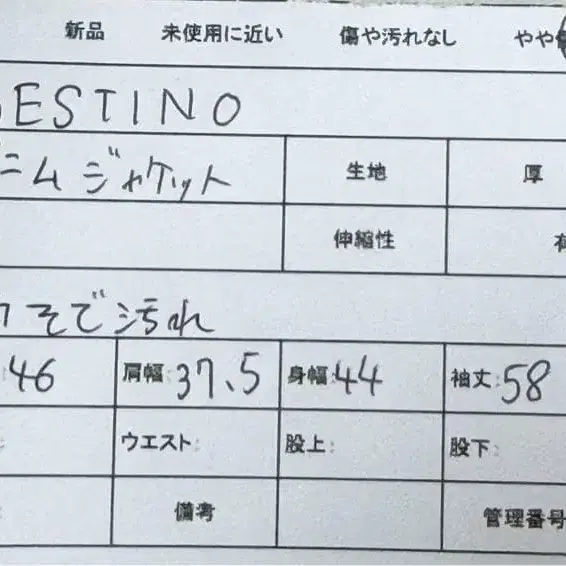 新品 未使用に近い 傷や汚れなし やや
ESTINO
ニムジャケット 生地 厚
伸縮性
そで汚れ
46 肩幅: 37.5 身幅: 44 袖丈: 58
ウエスト: 股上: 股下:
備考 管理番号